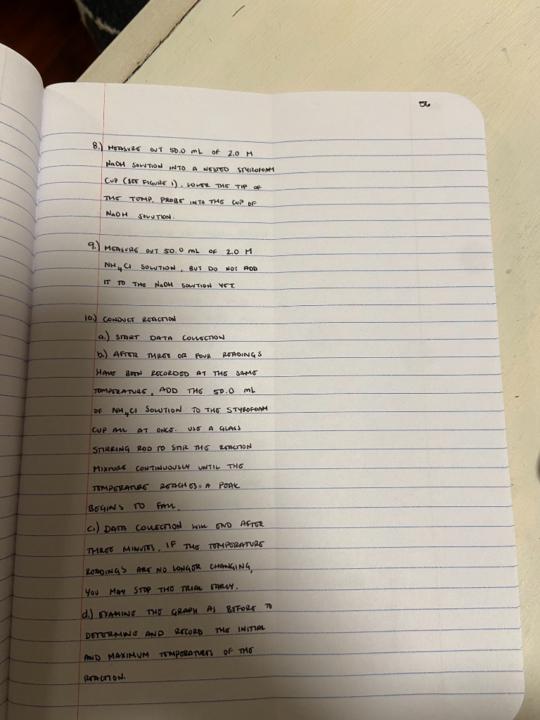 56
8.) MEASURE OUT 50.0 mL OF 2.0 M
NaOH SOLUTION INTO A NESTED STYROFOAM
CUP (SEE FIGURE 1). LOWER THE TIP OF
THE TEMP. PROBE INTO THE CUP OF
NaOH SOLUTION.
9.) MEASURE OUT 50.0 mL OF 2.0 M
NH4Cl SOLUTION, BUT DO NOT ADD
IT TO THE NaOH SOLUTION YET
10.) CONDUCT REACTION
a.) START DATA COLLECTION
b.) AFTER THREE OR FOUR READINGS
HAVE BEEN RECORDED AT THE SAME
TEMPERATURE, ADD THE 50.0 mL
OF NH4Cl SOLUTION TO THE STYROFOAM
CUP ALL AT ONCE. USE A GLASS
STIRRING ROD TO STIR THE REACTION
MIXTURE CONTINUOUSLY UNTIL THE
TEMPERATURE REACHES A PEAK
BEGINS TO FALL.
c.) DATA COLLECTION WILL END AFTER
THREE MINUTES. IF THE TEMPERATURE
READINGS ARE NO LONGER CHANGING,
YOU MAY STOP THE TRIAL EARLY.
d.) EXAMINE THE GRAPH AS BEFORE TO
DETERMINE AND RECORD THE INITIAL
AND MAXIMUM TEMPERATURES OF THE
REACTION.